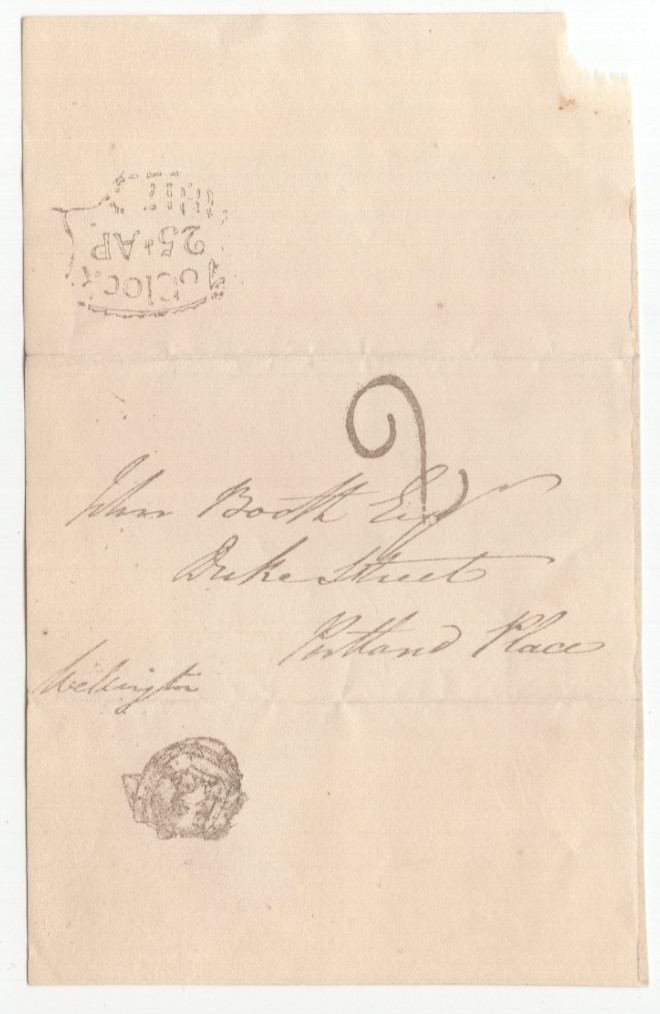 o'Clock
25 AP
2
John Booth Esqr
Duke Street
Portland Place
Wellington